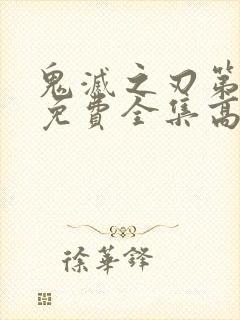 鬼滅之刃第
免費全集高
徐華鋒